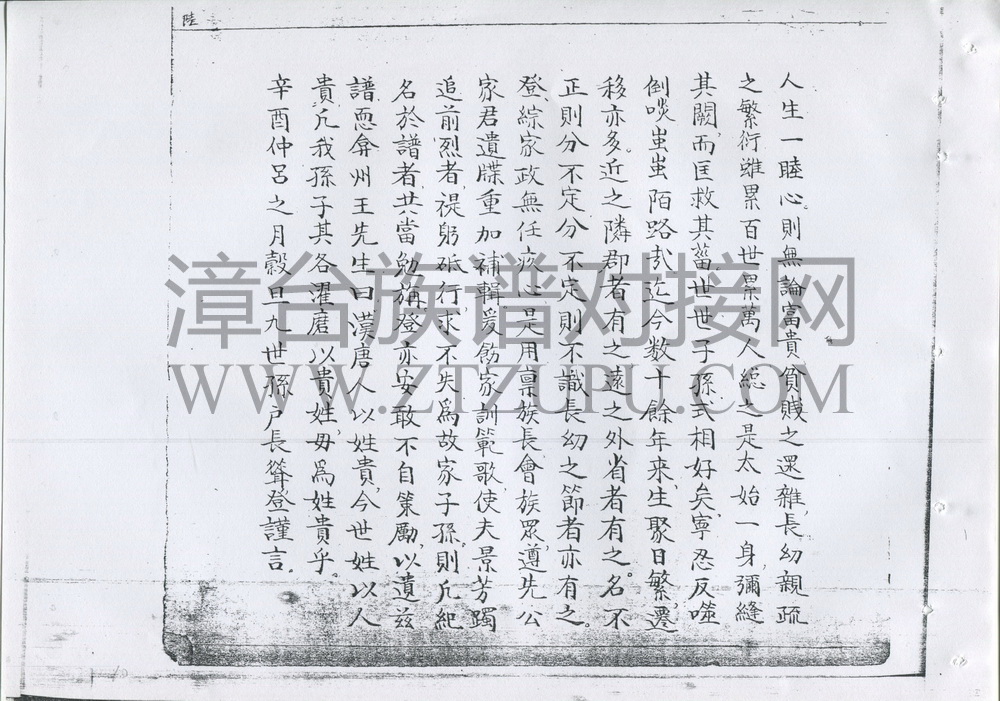 陸
人生一睦心則無論富貴貧賤之還雜長幼親疏
之繁衍雖累百世累萬人總之是太始一身彌縫
其闕而匡救其菑世世子孫式相好矣寧忍反噬
倒啖蚩蚩陌路哉迄今数十餘年来生聚日繁遷
移亦多近之隣郡者有之遠之外省者有之名不
正則分不定分不定則不識長幼之節者亦有之
登綜家政無任疚心是用稟族長會族眾遵先公
家君遺牒重加補輯爰飭家訓範歌使夫景芳躅
追前烈者禔躬砥行求不失為故家子孫則凡紀
名於譜者共當勉旃登亦安敢不自策勵以遺茲
譜恧弇州王先生曰漢唐人以姓貴今世姓以人
貴凡我孫子其各濯磨以貴姓毋為姓貴乎
辛酉仲呂之月穀旦九世孫户長聳登謹言
漳台族谱对接网
WWW.ZTZUPU.COM